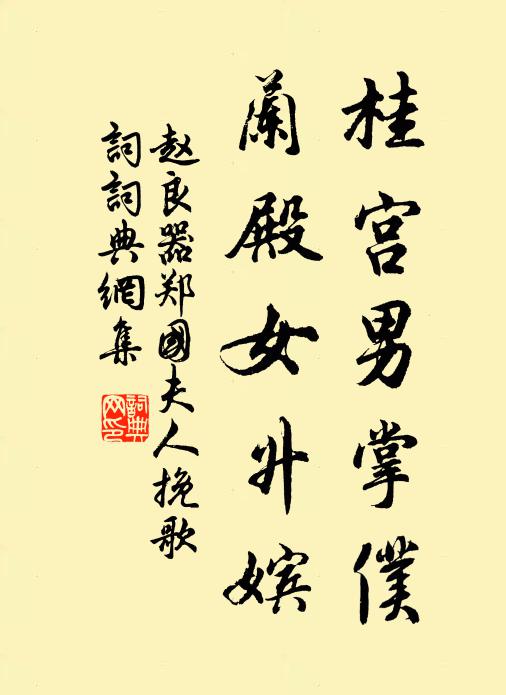 桂宫男掌僕
蘭殿女升嬪
赵良器郑國夫人挽歌
詞詞典網集
詞典网印